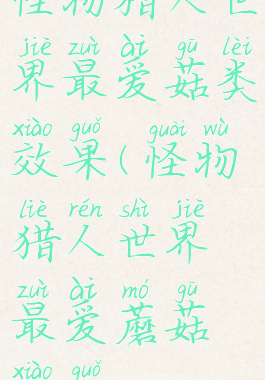 怪物猎人世
jiè zuì ài gū lèi
界最爱菇类
xiào guǒ guài wù
效果(怪物
liè rén shì jiè
猎人世界
zuì ài mó gū
最爱蘑菇
xiào guǒ